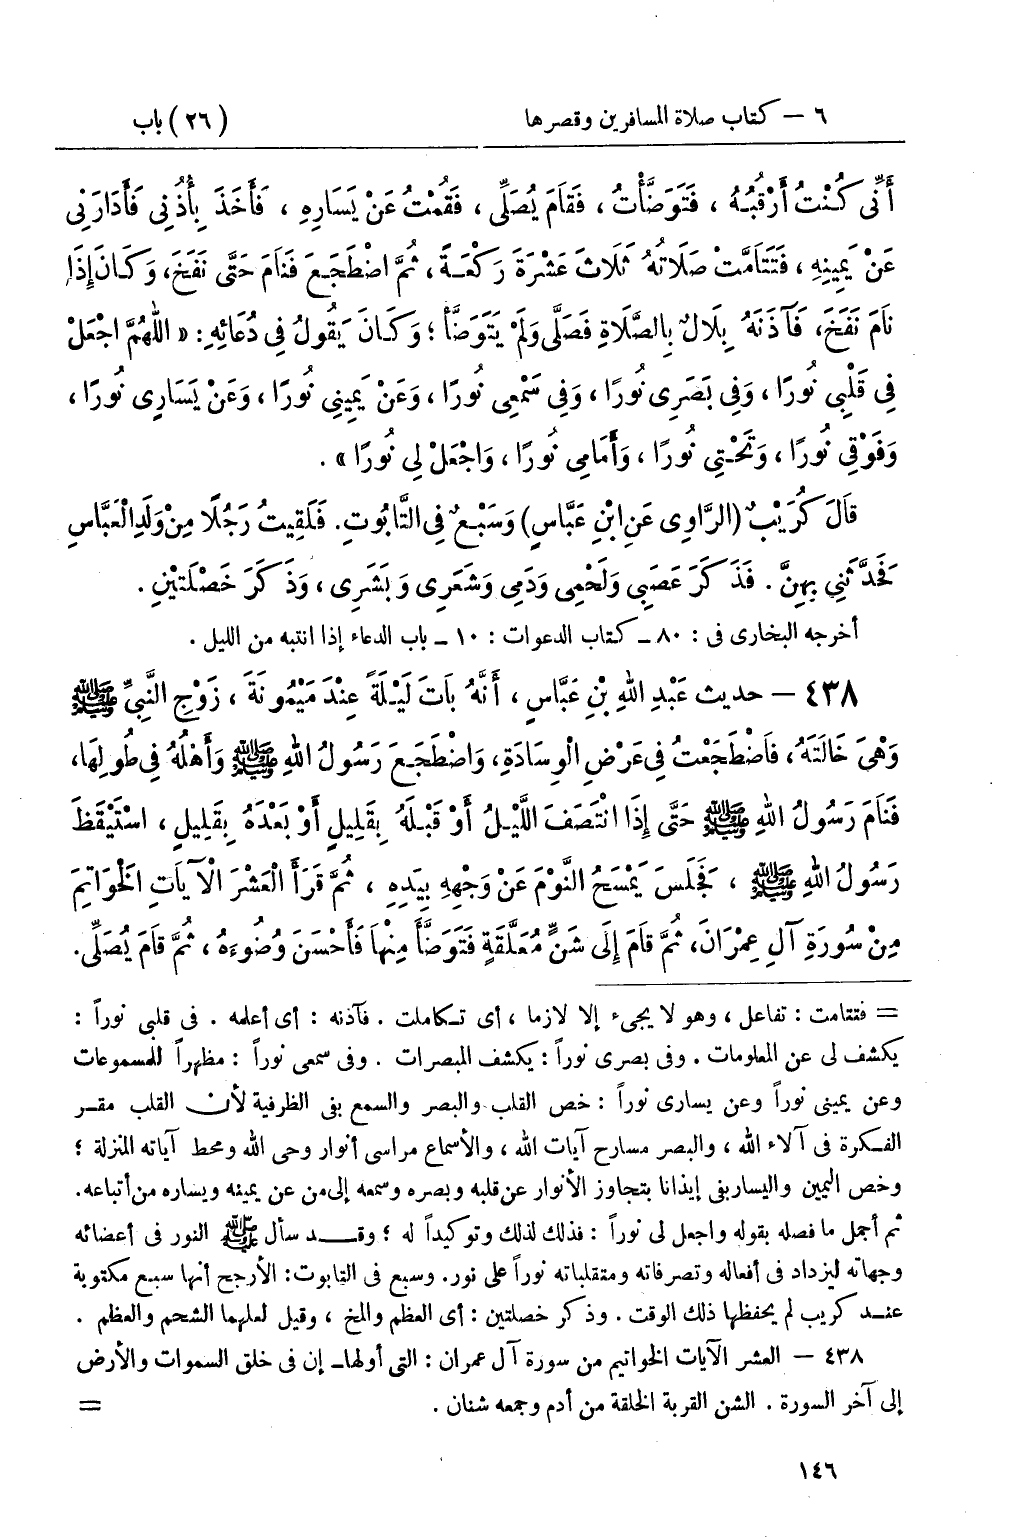 ٦ – كتاب صلاة المسافرين وقصرها
(٢٦) باب
أَنِّى كُنْتُ أَرْقُبُهُ ، فَتَوَضَّأْتُ ، فَقَامَ يُصَلِّى ، فَقُمْتُ عَنْ يَسَارِهِ ، فَأَخَذَ بِأُذُنِى فَأَدَارَنِى
عَنْ يَمِينِهِ ، فَتَتَامَّتْ صَلَاتُهُ ثَلَاثَ عَشْرَةَ رَكْعَةً ، ثُمَّ اضْطَجَعَ فَنَامَ حَتَّى نَفَخَ، وَكَانَ إِذَا
نَامَ نَفَخَ، فَآذَنَهُ بِلَالٌ بِالصَّلَاةِ فَصَلَّى وَلَمْ يَتَوَضَّأْ ؛ وَكَانَ يَقُولُ فِى دُعَائِهِ : « اللّٰهُمَّ اجْعَلْ
فِى قَلْبِى نُورًا ، وَفِى بَصَرِى نُورًا ، وَفِى سَمْعِى نُورًا ، وَعَنْ يَمِينِى نُورًا ، وَعَنْ يَسَارِى نُورًا ،
وَفَوْقِى نُورًا ، وَتَحْتِى نُورًا ، وَأَمَامِى نُورًا ، وَاجْعَلْ لِى نُورًا » .
قَالَ كُرَيْبٌ (الرَّاوِى عَنِ ابْنِ عَبَّاسٍ) وَسَبْعٌ فِى التَّابُوتِ. فَلَقِيتُ رَجُلًا مِنْ وَلَدِ الْعَبَّاسِ
فَحَدَّثَنِى بِهِنَّ . فَذَكَرَ عَصَبِى وَلَحْمِى وَدَمِى وَشَعَرِى وَبَشَرِى ، وَذَكَرَ خَصْلَتَيْنِ .
أخرجه البخارى فى : ٨٠ ـ كتاب الدعوات : ١٠ ـ باب الدعاء إذا انتبه من الليل .
٤٣٨ – حديث عَبْدِ اللهِ بْنِ عَبَّاسٍ ، أَنَّهُ بَاتَ لَيْلَةً عِنْدَ مَيْمُونَةَ ، زَوْجِ النَّبِىِّ ﷺ
وَهْىَ خَالَتُهُ ، فَاضْطَجَعْتُ فِى عَرْضِ الْوِسَادَةِ، وَاضْطَجَعَ رَسُولُ اللهِ ﷺ وَأَهْلُهُ فِى طُولِهَا،
فَنَامَ رَسُولُ اللهِ ﷺ حَتَّى إِذَا انْتَصَفَ اللَّيْلُ أَوْ قَبْلَهُ بِقَلِيلٍ أَوْ بَعْدَهُ بِقَلِيلٍ ، اسْتَيْقَظَ
رَسُولُ اللهِ ﷺ ، فَجَلَسَ يَمْسَحُ النَّوْمَ عَنْ وَجْهِهِ بِيَدِهِ ، ثُمَّ قَرَأَ الْعَشْرَ الْآيَاتِ الْخَوَاتِمَ
مِنْ سُورَةِ آلِ عِمْرَانَ، ثُمَّ قَامَ إِلَى شَنٍّ مُعَلَّقَةٍ فَتَوَضَّأَ مِنْهَا فَأَحْسَنَ وُضُوءَهُ ، ثُمَّ قَامَ يُصَلِّى.
= فتتامت : تفاعل ، وهو لا يجىء إلا لازما ، أى تكاملت . فآذنه : أى أعلمه . فى قلبى نوراً :
يكشف لى عن المعلومات . وفى بصرى نوراً : يكشف المبصرات . وفى سمعى نوراً : مظهراً للمسموعات
وعن يمينى نوراً وعن يسارى نوراً : خص القلب والبصر والسمع بفى الظرفية لأن القلب مقر
الفكرة فى آلاء الله ، والبصر مسارح آيات الله ، والأسماع مراسى أنوار وحى الله ومحط آياته المنزلة ؛
وخص اليمين واليسار بنى إيذانا بتجاوز الأنوار عن قلبه وبصره وسمعه إلى من عن يمينه ويساره من أتباعه.
ثم أجمل ما فصله بقوله واجعل لى نوراً : فذلك لذلك وتوكيداً له ؛ وقد سأل ﷺ النور فى أعضائه
وجهاته ليزداد فى أفعاله وتصرفاته ومتقلباته نوراً على نور. وسبع فى التابوت: الأرجح أنها سبع مكتوبة
عند كريب لم يحفظها ذلك الوقت . وذكر خصلتين : أى العظم والمخ ، وقيل لعلهما الشحم والعظم .
٤٣٨ – العشر الآيات الخواتيم من سورة آل عمران : التى أولها ـ إن فى خلق السموات والأرض
إلى آخر السورة . الشن القربة الخلقة من أدم وجمعه شنان .
=
١٤٦